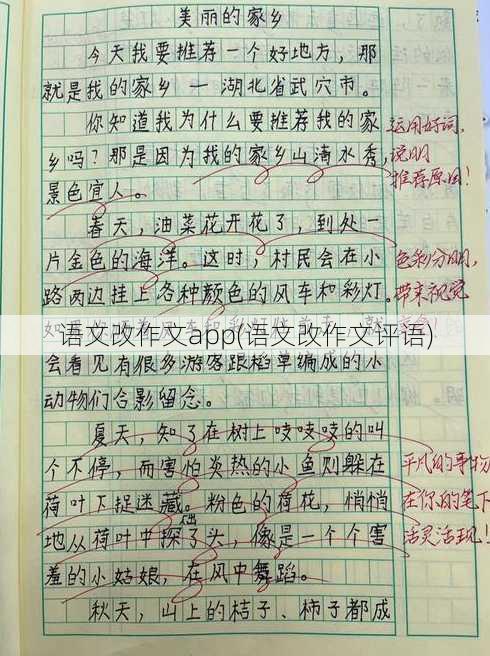 美丽的家乡
今天我要推荐一个好地方，那
就是我的家乡 — 湖北省武穴市。
你知道我为什么要推荐我的家
乡吗？那是因为我的家乡山清水秀，
景色宜人。
运用好词，
说明
推荐原因！
春天，油菜花开花了，到处一
片金色的海洋。这时，村民会在小
路两边挂上各种颜色的风车和彩灯。
色彩分明，
带来视觉
语文改作文app(语文改作文评语)
会看见有很多游客跟稻草编成的小
动物们合影留念。
夏天，知了在树上吱吱吱的叫
个不停，而害怕炎热的小鱼则躲在
荷叶下捉迷藏。粉色的荷花，悄悄
地从荷叶中探出了头，像是一个个害
羞的小姑娘，在风中舞蹈。
平凡的事物
在你的笔下
活灵活现！
秋天，山上的桔子、柿子都成